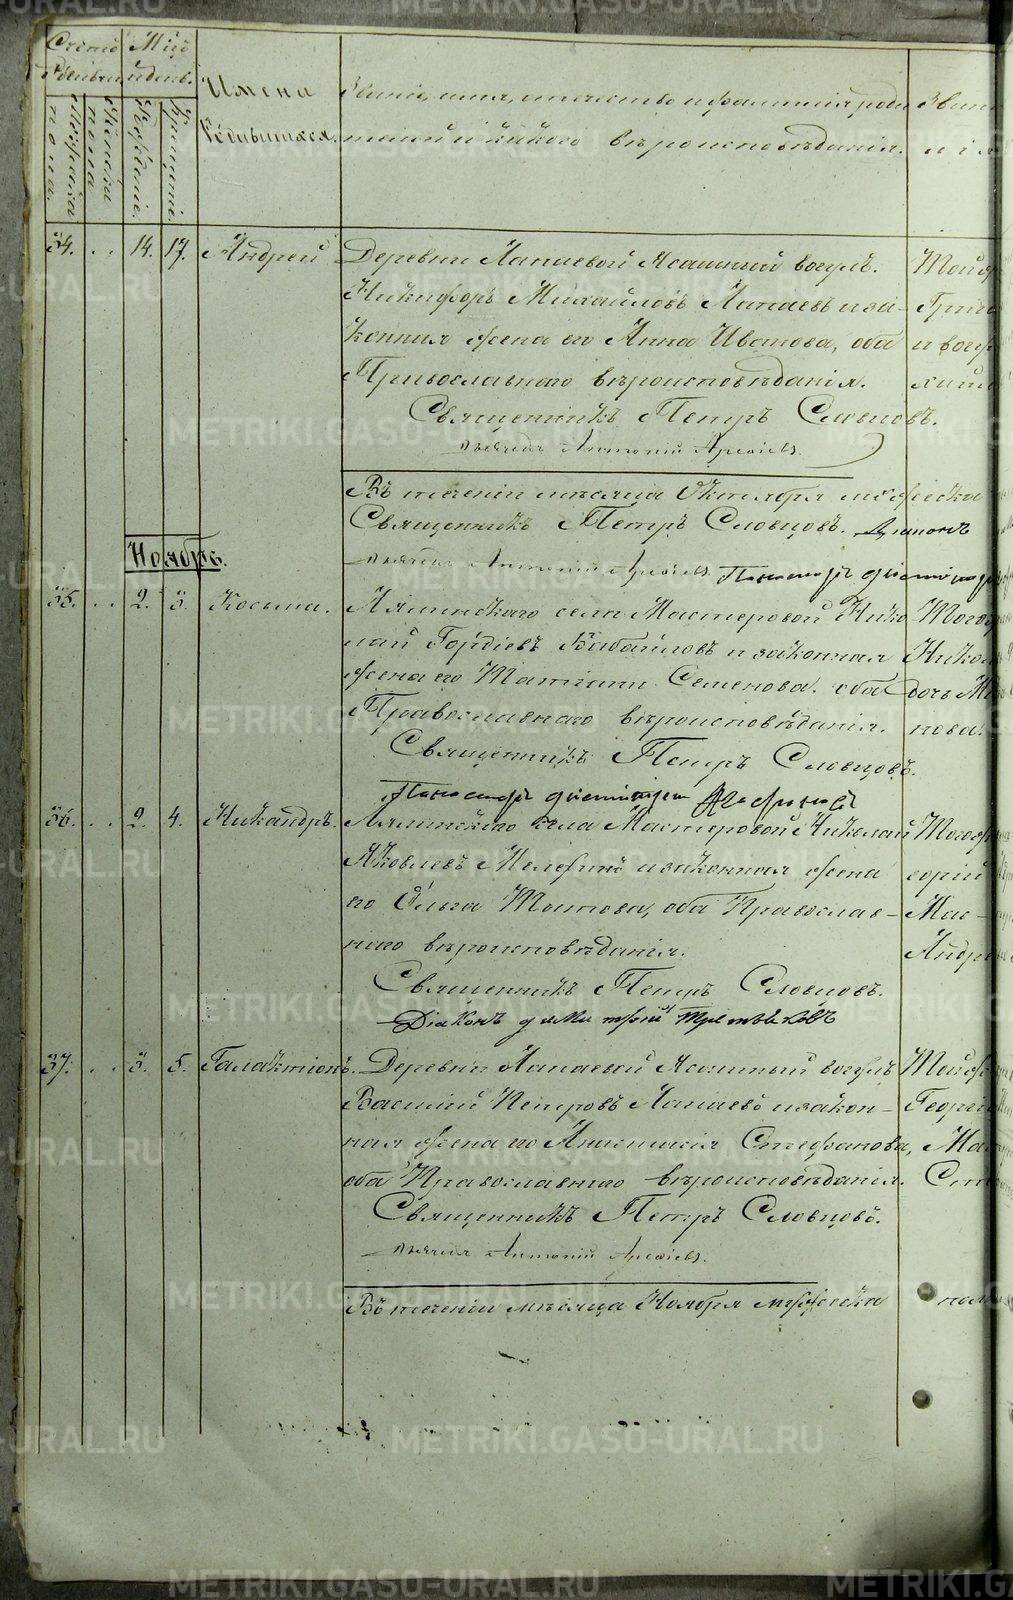 Счетъ
Родивших.
Мѣсц
и день.
Мужеска
пола.
Женска
пола
Рожденіе.
Крещеніе.
Имена
Родившихся.
Званіе, имя, отчество и фамилія роди
телей и какого вѣроисповѣданія.
Звані
и і
34. . . 14. 17. Андрей Деревни Лапаевой Ясашный вогулъ.
Никифоръ Михайловъ Лапаевъ и за-
конная жена его Анна Иванова, оба
Православнаго вѣроисповѣданія.
Священникъ Петръ Словцовъ.
Дьячекъ Антоній Арефьевъ.
Той
Григо
и вогу
Въ теченіи мѣсяца Октября мужеска
Священникъ Петръ Словцовъ. Діаконъ
Дьячекъ Антоній Арефьевъ. Пономарь
Ноябрь.
35. . . 2. 3. Косьма. Лялинскаго села Мастеровой Нико
лай Гордіевъ Бабайловъ и законная
жена его Татіана Семенова. оба
Православнаго вѣроисповѣданія.
Священникъ Петръ Словцовъ.
Пономарь
Того
Никол
дочь М
нова.
36. . . 2. 4. Никандръ. Лялинскаго села Мастеровой Николай
Яковлевъ и законная жена
его Ольга Титова, оба Православ-
наго вѣроисповѣданія.
Священникъ Петръ Словцовъ.
Діаконъ Димитрій Третьяковъ
Того
горій
Мас-
Андре
37. . . 3. 5. Галактіонъ. Деревни Лапаевой Ясашный вогулъ
Василій Петровъ Лапаевъ и закон-
ная жена его Анастасія Стефанова,
оба Православнаго вѣроисповѣданія.
Священникъ Петръ Словцовъ.
Дьячекъ Антоній Арефьевъ.
Той
Георгі
Ма
Сте
Въ теченіи мѣсяца Ноября мужеска
пола
METRIKI.GASO-URAL.RU